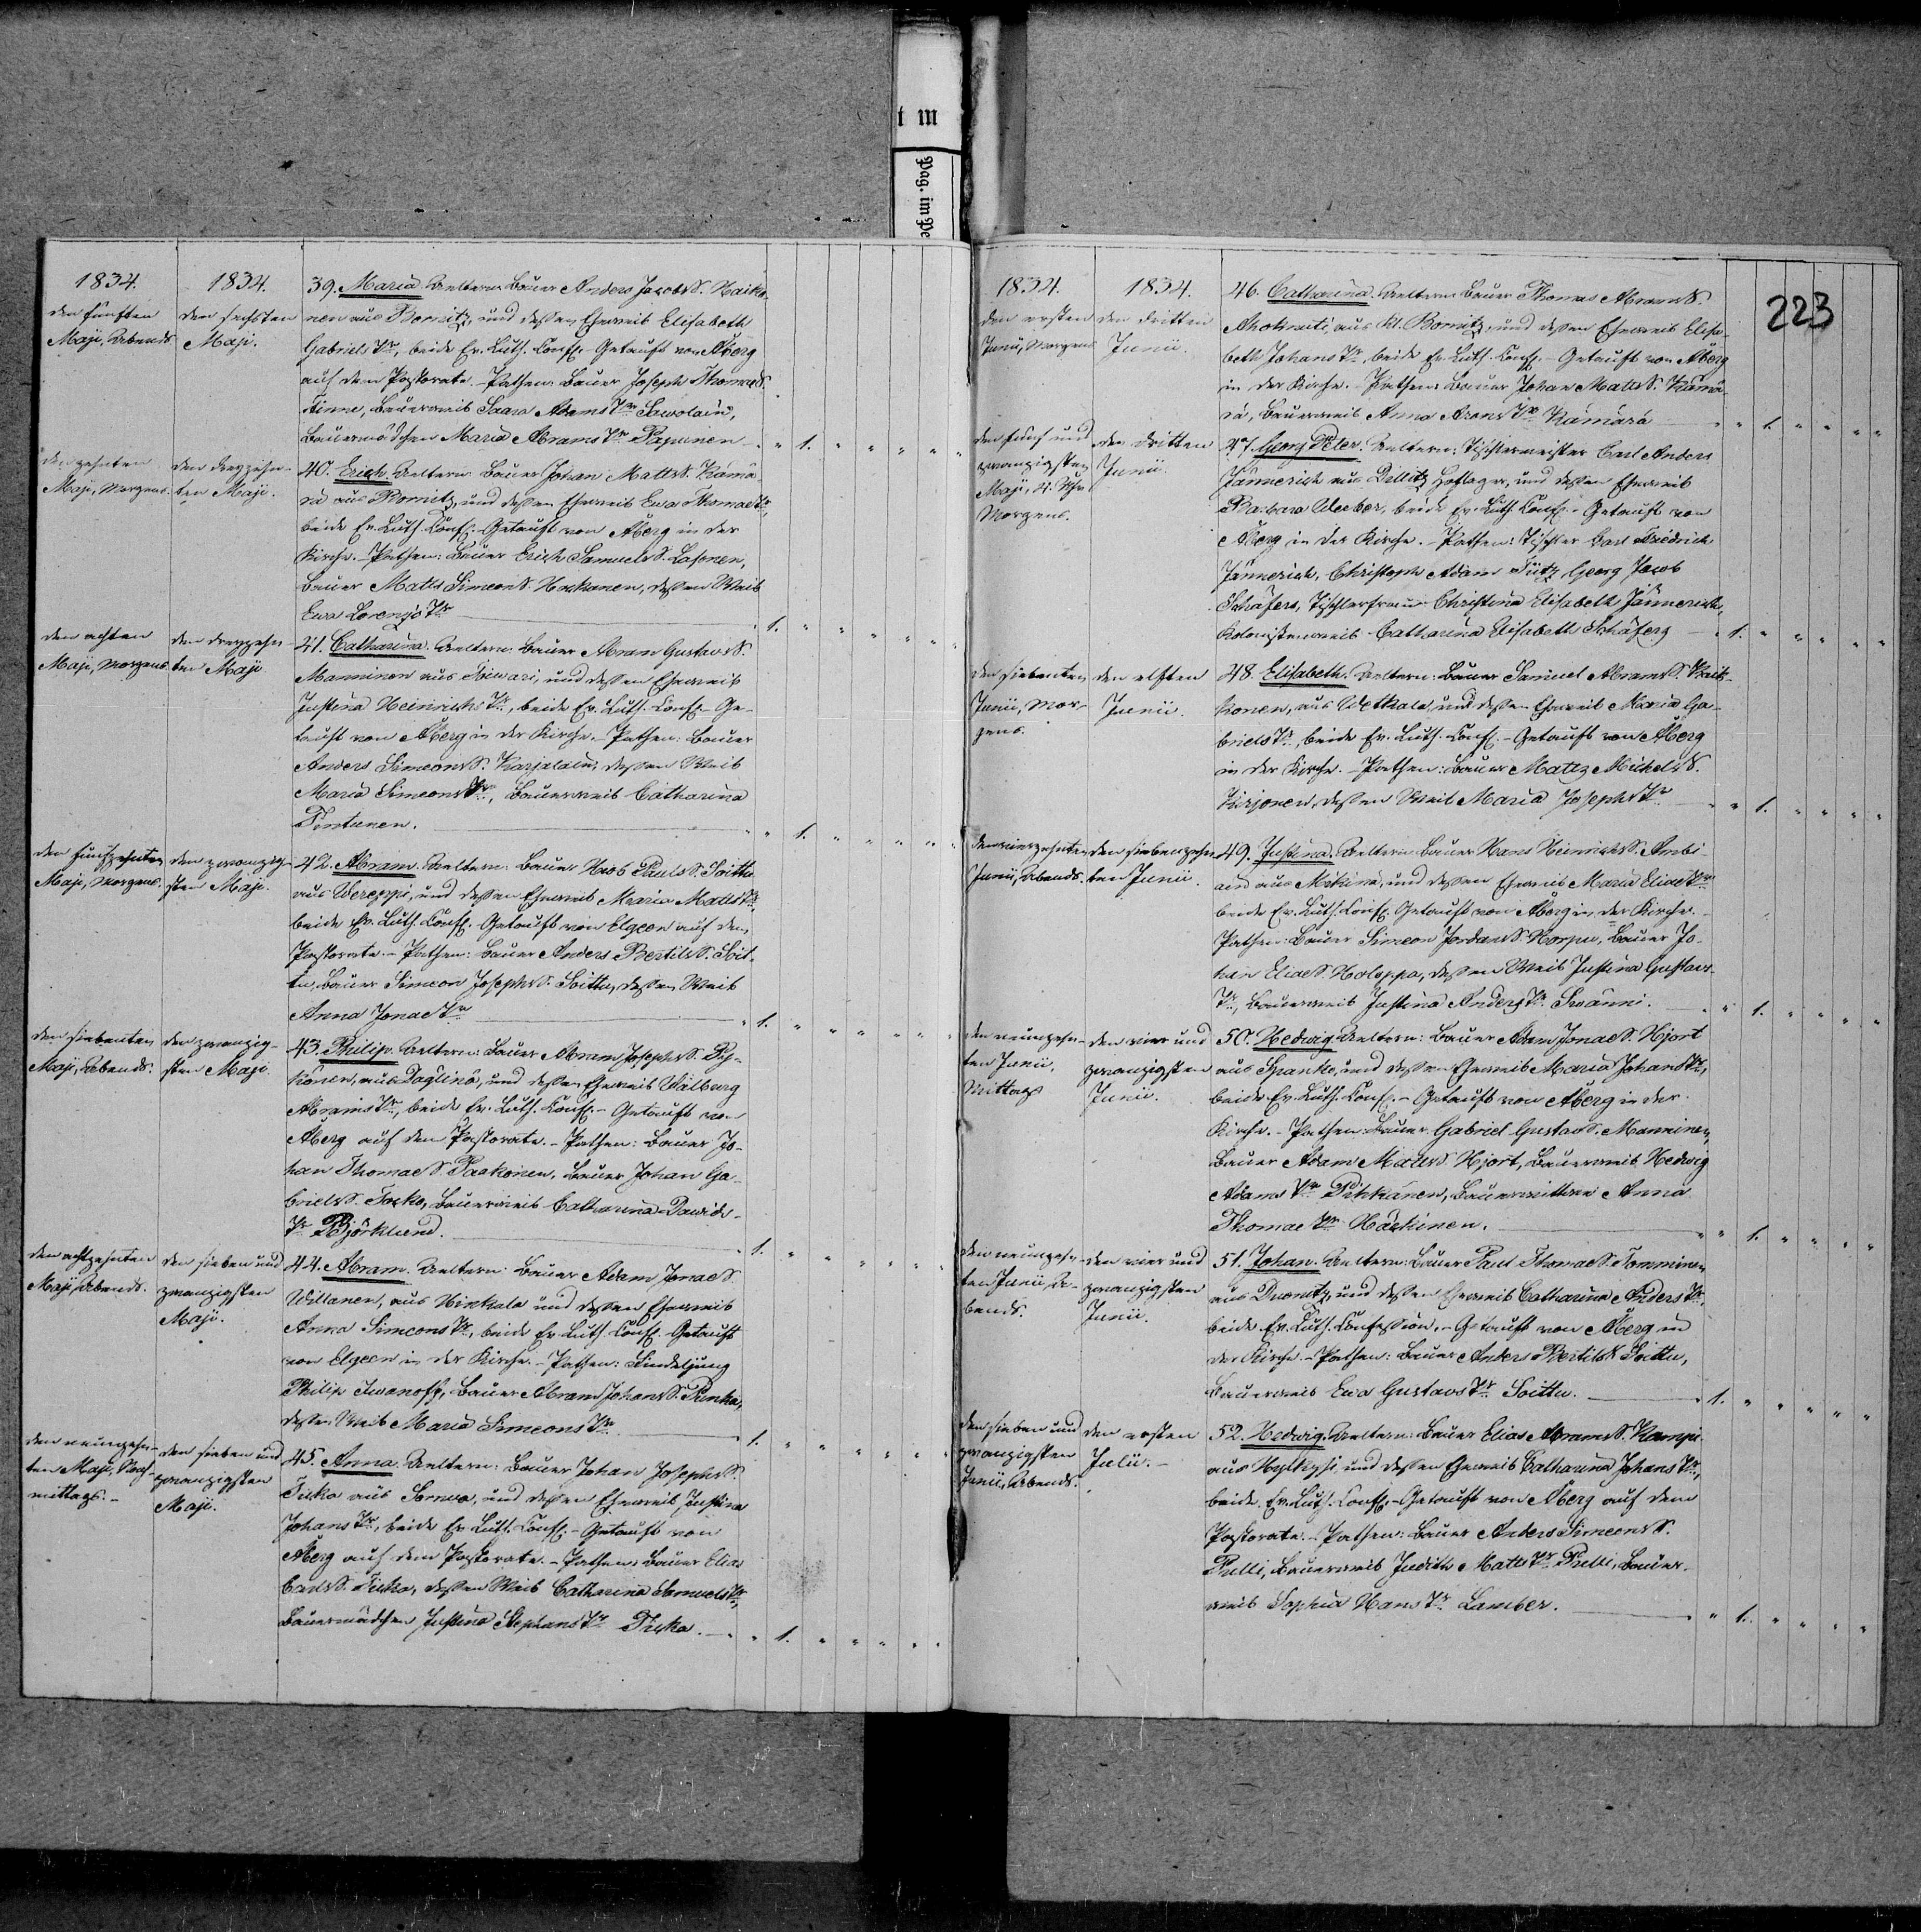 t m
Pag. im Pe
1834.
1834.
den fünften
Maji, Abends
den sechsten
Maji.
39. Maria. Aeltern: Bauer Anders JacobsS. Haiko-
nen aus Bornitz, und dessen Eheweib Elisabeth
Gabriels Tr, beide Ev. Luth. Conf. - Getauft von Åberg
auf dem Pastorate. - Pathen: Bauer Joseph ThomaeS.
Tinne, Bauerweib Saara Adams Tr Sawolain,
Bauermädchen Maria Abrams Tr Papunen 1.
den zehnten
Maji, Morgens.
den dreyzehn-
ten Maji.
40. Erich. Aeltern: Bauer Johan MattsS. Kämä-
rä aus Bornitz, und dessen Eheweib Ewa Thomae Tr,
beide Ev. Luth. Conf. - Getauft von Åberg in der
Kirche. - Pathen: Bauer Erich SamuelsS. Laponen,
Bauer Matts SimeonS. Hackanen, dessen Weib
Ewa Lorenz's Tr 1.
den achten
Maji, Morgens.
den dreyzehn-
ten Maji
41. Catharina. Aeltern: Bauer Abram GustavsS.
Manninen aus Toiwari, und dessen Eheweib
Justina Heinrichs Tr, beide Ev. Luth. Conf. - Ge-
tauft von Åberg in der Kirche. - Pathen: Bauer
Anders SimeonsS. Karjalain, dessen Weib
Maria Simeons Tr, Bauerweib Catharina
Tintunen. 1.
den fünfzehnten
Maji, Morgens.
den zwanzig-
sten Maji.
42. Abram. Aeltern: Bauer Jacob PaulsS. Soittu
aus Wereppi, und dessen Eheweib Maria Matts Tr,
beide Ev. Luth. Conf. Getauft von Elgeen auf dem
Pastorate. - Pathen: Bauer Anders BertilsS. Soit-
tu, Bauer Simeon JosephsS. Soittu, dessen Weib
Anna Jonae Tr 1.
den siebenten
Maji, Abends.
den zwanzig-
sten Maji.
43. Philip. Aeltern: Bauer Abram JosephsS. Py-
könen, aus Daglino, und dessen Eheweib Walborg
Abrams Tr, beide Ev. Luth. Conf. - Getauft von
Åberg auf dem Pastorate. - Pathen: Bauer Jo-
han ThomaeS. Paakonen, Bauer Johan Ga-
brielsS. Torko, Bauerweib Catharina Davids-
Tr Björklund. 1.
den achtzehnten
Maji, Abends.
den sieben und
zwanzigsten
Maji.
44. Abram. Aeltern: Bauer Adam JonaeS.
Willanen, aus Hinkala und dessen Eheweib
Anna Simeons Tr, beide Ev. Luth. Conf. - Getauft
von Elgeen in der Kirche. - Pathen: Findeljung
Philip Iwanoff, Bauer Abram JohansS. Punka,
dessen Weib Maria Simeons Tr 1.
den neunzehn-
ten Maji, Nach-
mittags.
den sieben und
zwanzigsten
Maji.
45. Anna. Aeltern: Bauer Johan JosephsS.
Tiska aus Sorwa, und dessen Eheweib Justina
Johans Tr, beide Ev. Luth. Conf. - Getauft von
Åberg auf dem Pastorate. - Pathen: Bauer Elias
CarlsS. Tiska, dessen Weib Catharina Samuels Tr,
Bauermädchen Justina Stephans Tr Tiska. 1.
223
1834.
1834.
den ersten
Junii, Morgens
den dritten
Junii.
46. Catharina. Aeltern: Bauer Thomas AbramsS.
Ahokuaiti, aus Kl. Bornitz, und dessen Eheweib Elisa-
beth Johans Tr, beide Ev. Luth. Conf. - Getauft von Åberg
in der Kirche. - Pathen: Bauer Johan MattsS. Kämä-
rä, Bauerweib Anna Arons Tr Kämärä 1.
den fünf und
zwanzigsten
Maji, 4. Uhr
Morgens.
den dritten
Junii.
47. Georg Peter. Aeltern: Tischlermeister Carl Anders
Jännerich aus Dillitz Hoflager, und dessen Eheweib
Barbara Weeber, beide Ev. Luth. Conf. - Getauft von
Åberg in der Kirche. - Pathen: Tischler Carl Friedrich
Jännerich, Christoph Adam Tütz, Georg Jacob
Schäfers, Tischlerfrau Christina Elisabeth Jännerich,
Kolonistenweib Catharina Elisabeth Schäferg 1.
den siebenten
Junii, Mor-
gens.
den elften
Junii.
48. Elisabeth. Aeltern: Bauer Samuel AbramsS. Kaik-
konen, aus Wetkala, und dessen Eheweib Maria Ga-
briels Tr, beide Ev. Luth. Conf. - Getauft von Åberg
in der Kirche. - Pathen: Bauer Matts MichelsS.
Kirjonen, dessen Weib Maria Josephs Tr 1.
den vierzehnten
Junii, Abends.
den siebenzehn-
ten Junii.
49. Justina. Aeltern: Bauer Hans HeinrichsS. Ambi-
ain aus Mikina, und dessen Eheweib Maria Eliae Tr
beide Ev. Luth. Conf. Getauft von Åberg in der Kirche.
Pathen: Bauer Simeon JordansS. Horpu, Bauer Jo-
han EliaeS. Holoppa, dessen Weib Justina Gustavs-
Tr, Bauerweib Justina Anders Tr Swänni. 1.
den neunzehn-
ten Junii,
Mittags
den vier und
zwanzigsten
Junii.
50. Hedwig. Aeltern: Bauer Adam JonaeS. Hjort
aus Spanko, und dessen Eheweib Maria Johans Tr,
beide Ev. Luth. Conf. - Getauft von Åberg in der
Kirche. - Pathen: Bauer Gabriel GustavsS. Manninen,
Bauer Adam MattsS. Hjort, Bauerweib Hedwig
Adams Tr Pihkänen, Bauerwittwe Anna
Thomae Tr Häckinen. 1.
den neunzehn-
ten Junii, A-
bends.
den vier und
zwanzigsten
Junii.
51. Johan. Aeltern: Bauer Paul ThomaeS. Tomminen
aus Duonitz, und dessen Eheweib Catharina Anders Tr,
beide Ev. Luth. Confession. - Getauft von Åberg in
der Kirche. - Pathen: Bauer Anders BertilsS. Soittu,
Bauerweib Ewa Gustavs Tr Soittu. 1.
den sieben und
zwanzigsten
Junii, Abends.
den ersten
Julii.
52. Hedwig. Aeltern: Bauer Elias AbramsS. Kampi
aus Hylkysi, und dessen Eheweib Catharina Johans Tr,
beide Ev. Luth. Conf. - Getauft von Åberg auf dem
Pastorate. - Pathen: Bauer Anders SimeonsS.
Pulli, Bauerweib Judith Matts Tr Pulli, Bauer-
weib Sophia Hans Tr Lamber. 1.